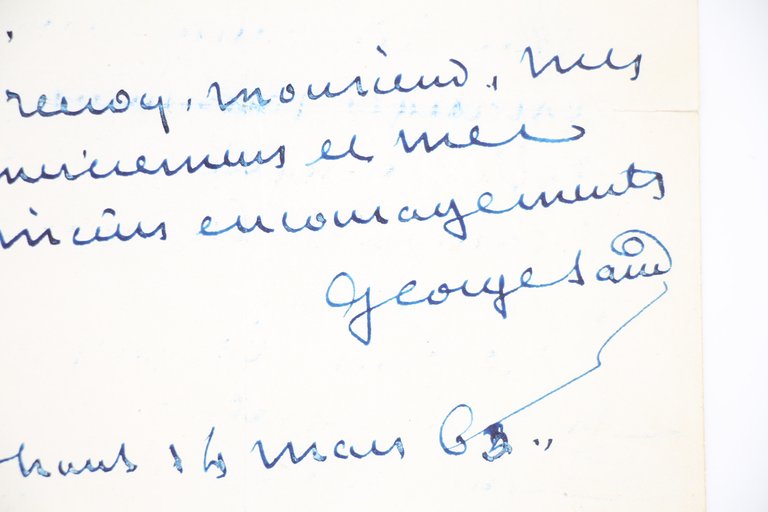 recevez, monsieur, mes
merciemens et mes
incères encouragements
George Sand
hant 14 mars 63..